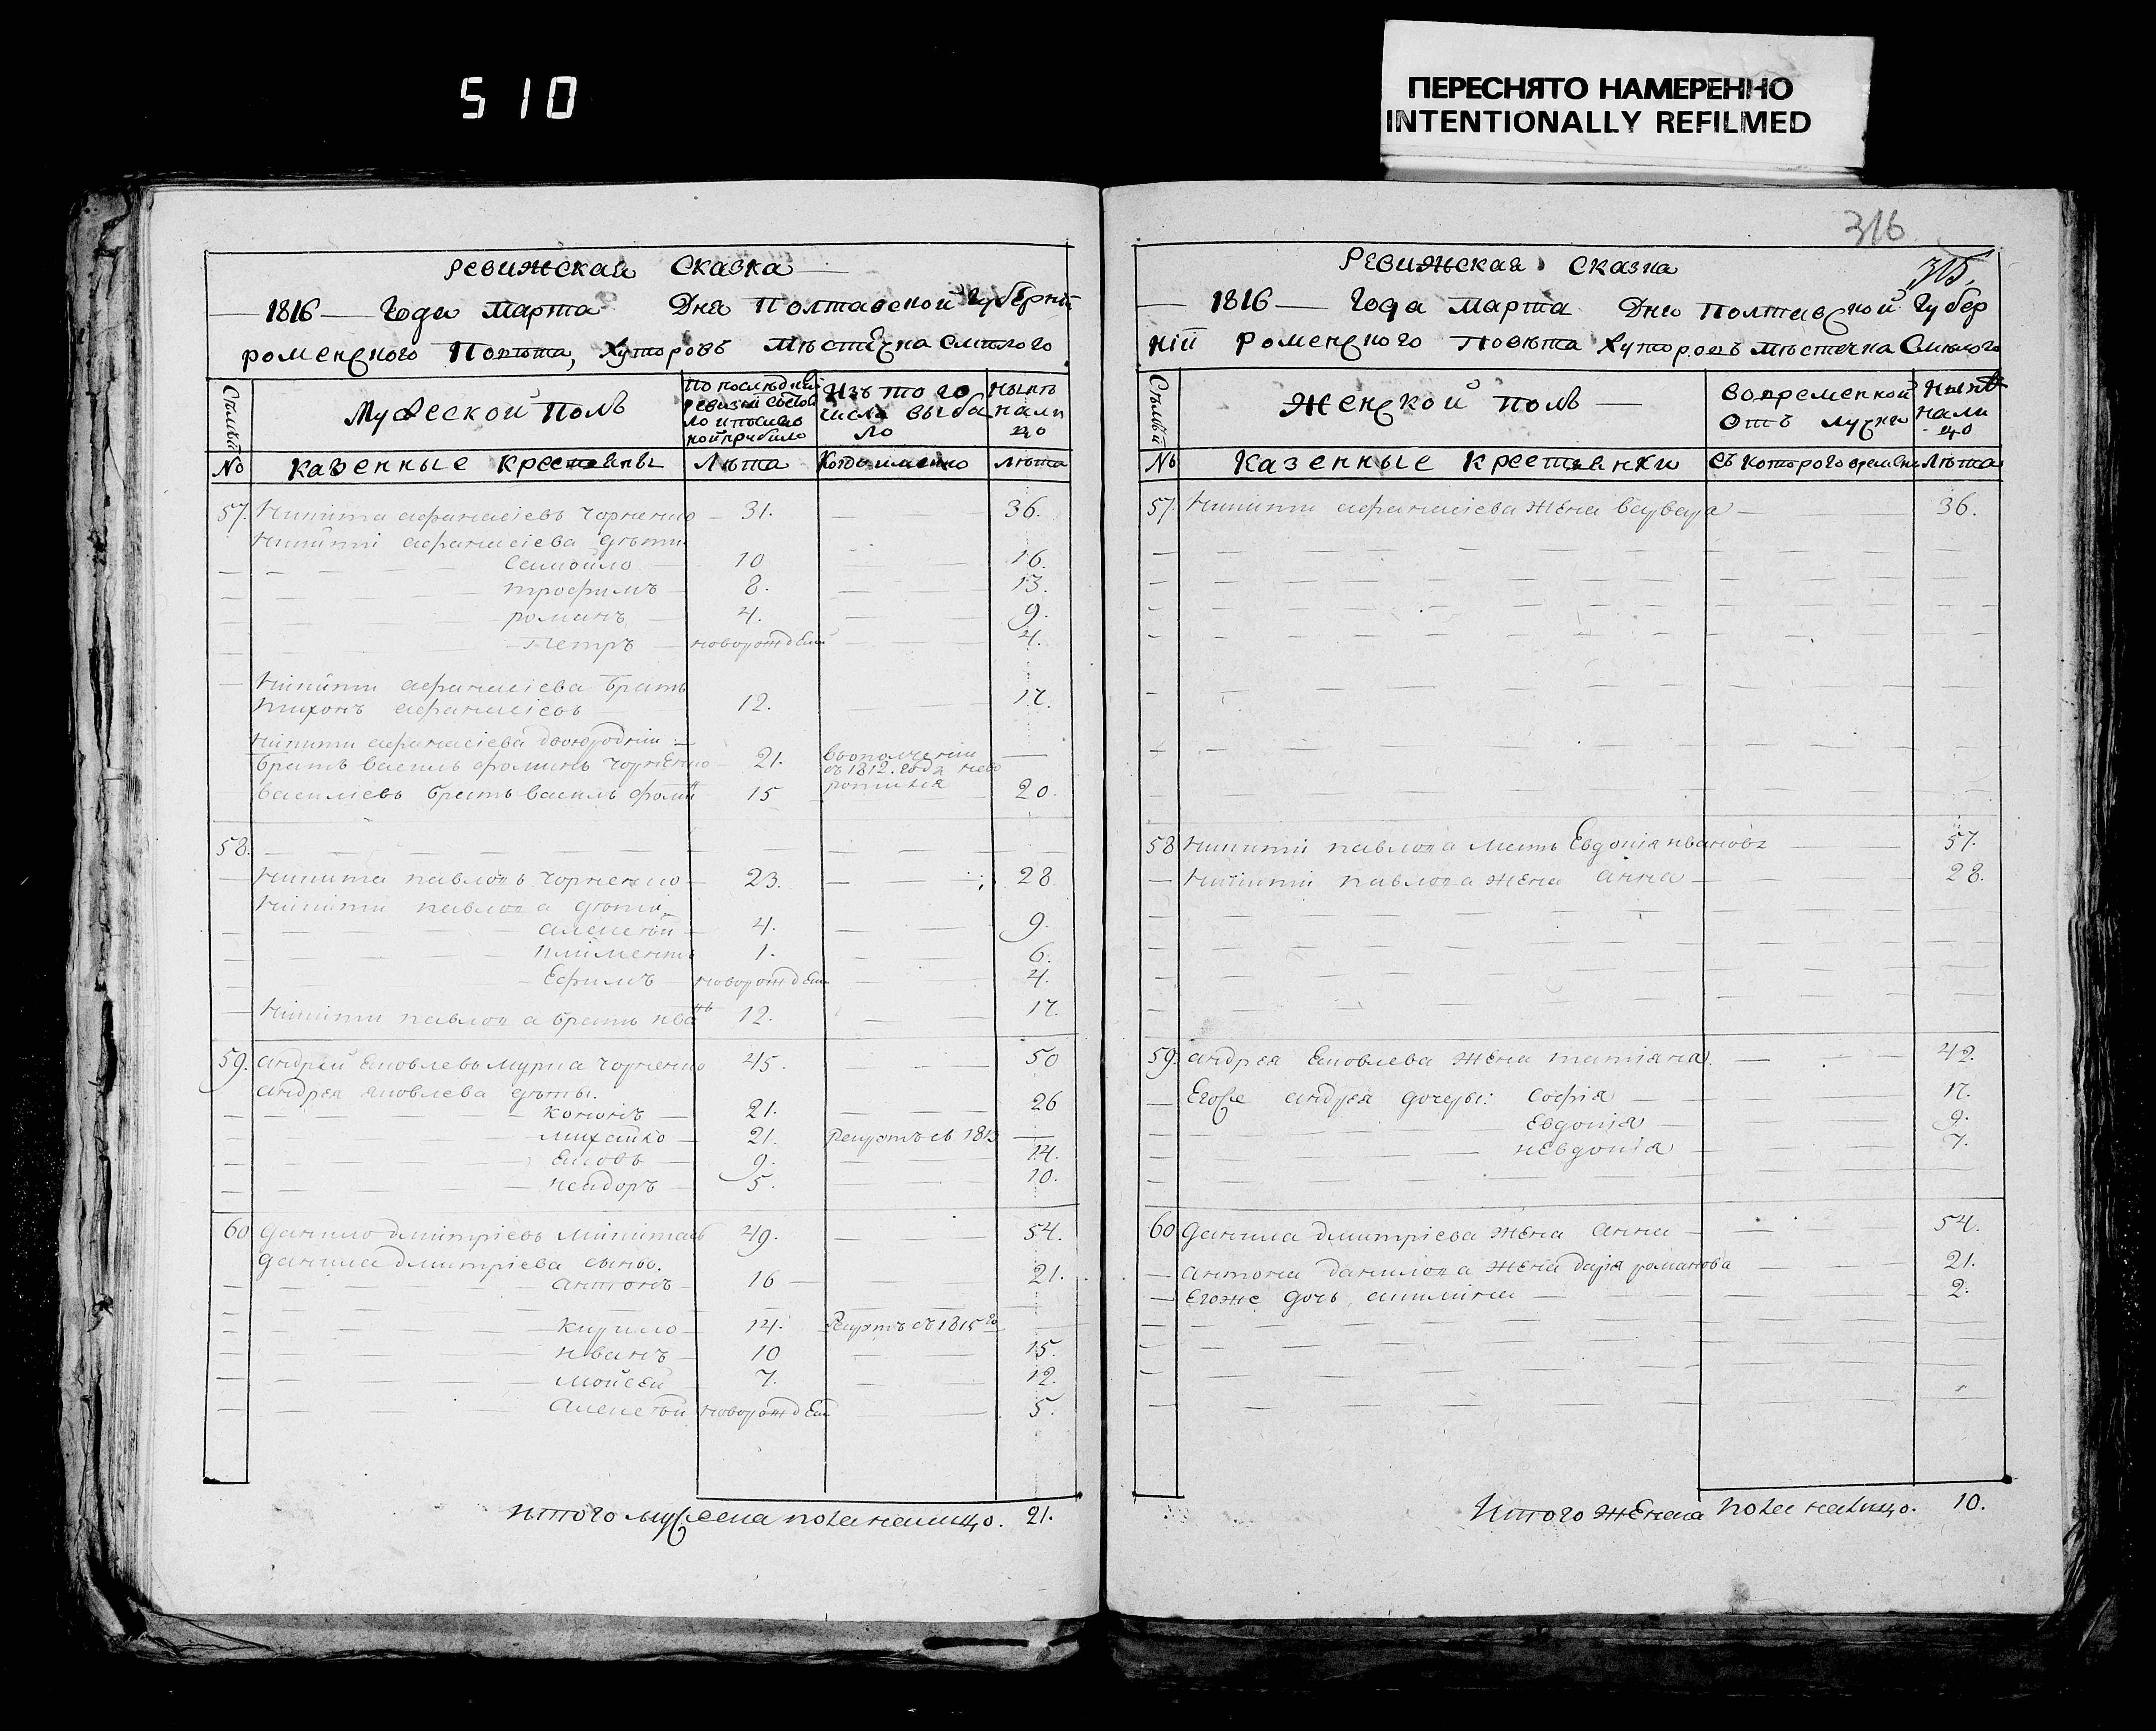 510
ПЕРЕСНЯТО НАМЕРЕННО
INTENTIONALLY REFILMED
Ревижская Сказка
1816 Года Марта Дня Полтавской Губерніи
роменского Повѣта, Хуторовъ Мѣстечка Смѣлого
Мужеской Полъ
По последней ревизіи состоя
Изъ того числа выбыло
Нынѣ на лицо
No Казенные крестьяны Лѣта Когда именно Лѣта
57. Никита афанасіевъ Чорненко 31. 36.
Никити афанасіева дѣти
Самойло 10 16.
трофимъ 8. 13.
романъ 4. 9.
Петръ новорожден 4.
Никити афанасіева братъ
тихонъ афанасіевъ 12. 17.
Никити афанасіева двоюродніи
братъ василь фоминъ Чорненко 21. въополченіи
съ 1812. года нево
Василіевъ братъ василь фомин 15 ротился 20.
58.
Никита павловъ Чорненко 23. 28
Никити павлова дѣти
алексѣй 4. 9.
климентъ 1. 6.
Ефимъ новорожден 4.
Никити павлова братъ иванъ 12. 17.
59. андрей Яковлевъ Мурха Чорненко 45. 50
андрея яковлева дѣты.
кононъ 21. 26
михайло 21. рекрутъ съ 1813
Яковъ 9. 14.
исидоръ 5. 10.
60 данило дмитріевъ Микитась 49. 54.
данила дмитріева сыны.
антонъ 16 21.
Кирило 14. Рекрутъ съ 1815 го
иванъ 10 15.
мойсей 7. 12.
алексѣй новорожден 5.
Итого мужеска пола налицо. 21.
316
315
Ревижская Сказка
1816 Года Марта Дня Полтавской Губер
ніи Роменского Повѣта Хуторовъ Мѣстечка Смѣлого
Женской полъ
Вовременной отъ лучки
Нынѣ на лицо
No Казенные Крестьянки Съ которого времени Лѣта
57. Никити афанасіева жена варвара 36.
58 Никити павлова мать Евдокія иванова 57.
Никити павлова жена анна 28.
59. андрея Яковлева жена татіана 42.
Егоже андрея дочери: софія 17.
Евдокія 9.
иЕвдокія 7.
60 данила дмитріева жена анна 54.
антона данилова жена дарія романова 21.
Егоже дочь акилина 2.
Итого женска пола налицо. 10.